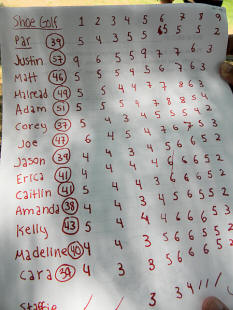 Shoe Golf 1 2 3 4 5 6 7 8 9
Par 39 5 4 3 5 5 5 5 2
Justin 57 9 6 5 5 9 7 7 6 3
Matt 46 5 5 5 4 5 6 7 6 3
Mairead 49 5 5 4 4 7 7 8 6 3
Adam 51 5 5 5 9 7 8 8 5 4
Corey 37 5 4 3 4 5 5 5 4 2
Joe 47 6 4 5 4 7 6 7 5 3
Jason 39 4 4 3 4 5 6 6 5 2
Erica 41 4 4 4 4 6 6 5 2
Caitlin 41 5 4 4 4 6 6 5 2
Amanda 38 4 4 3 4 5 6 5 5 2
Kelly 43 5 4 4 4 6 6 6 5 3
Madeline 40 4 4 3 5 6 6 5 5 2
Cara 39 4 3 3 5 6 6 6 5 2
3 3 4